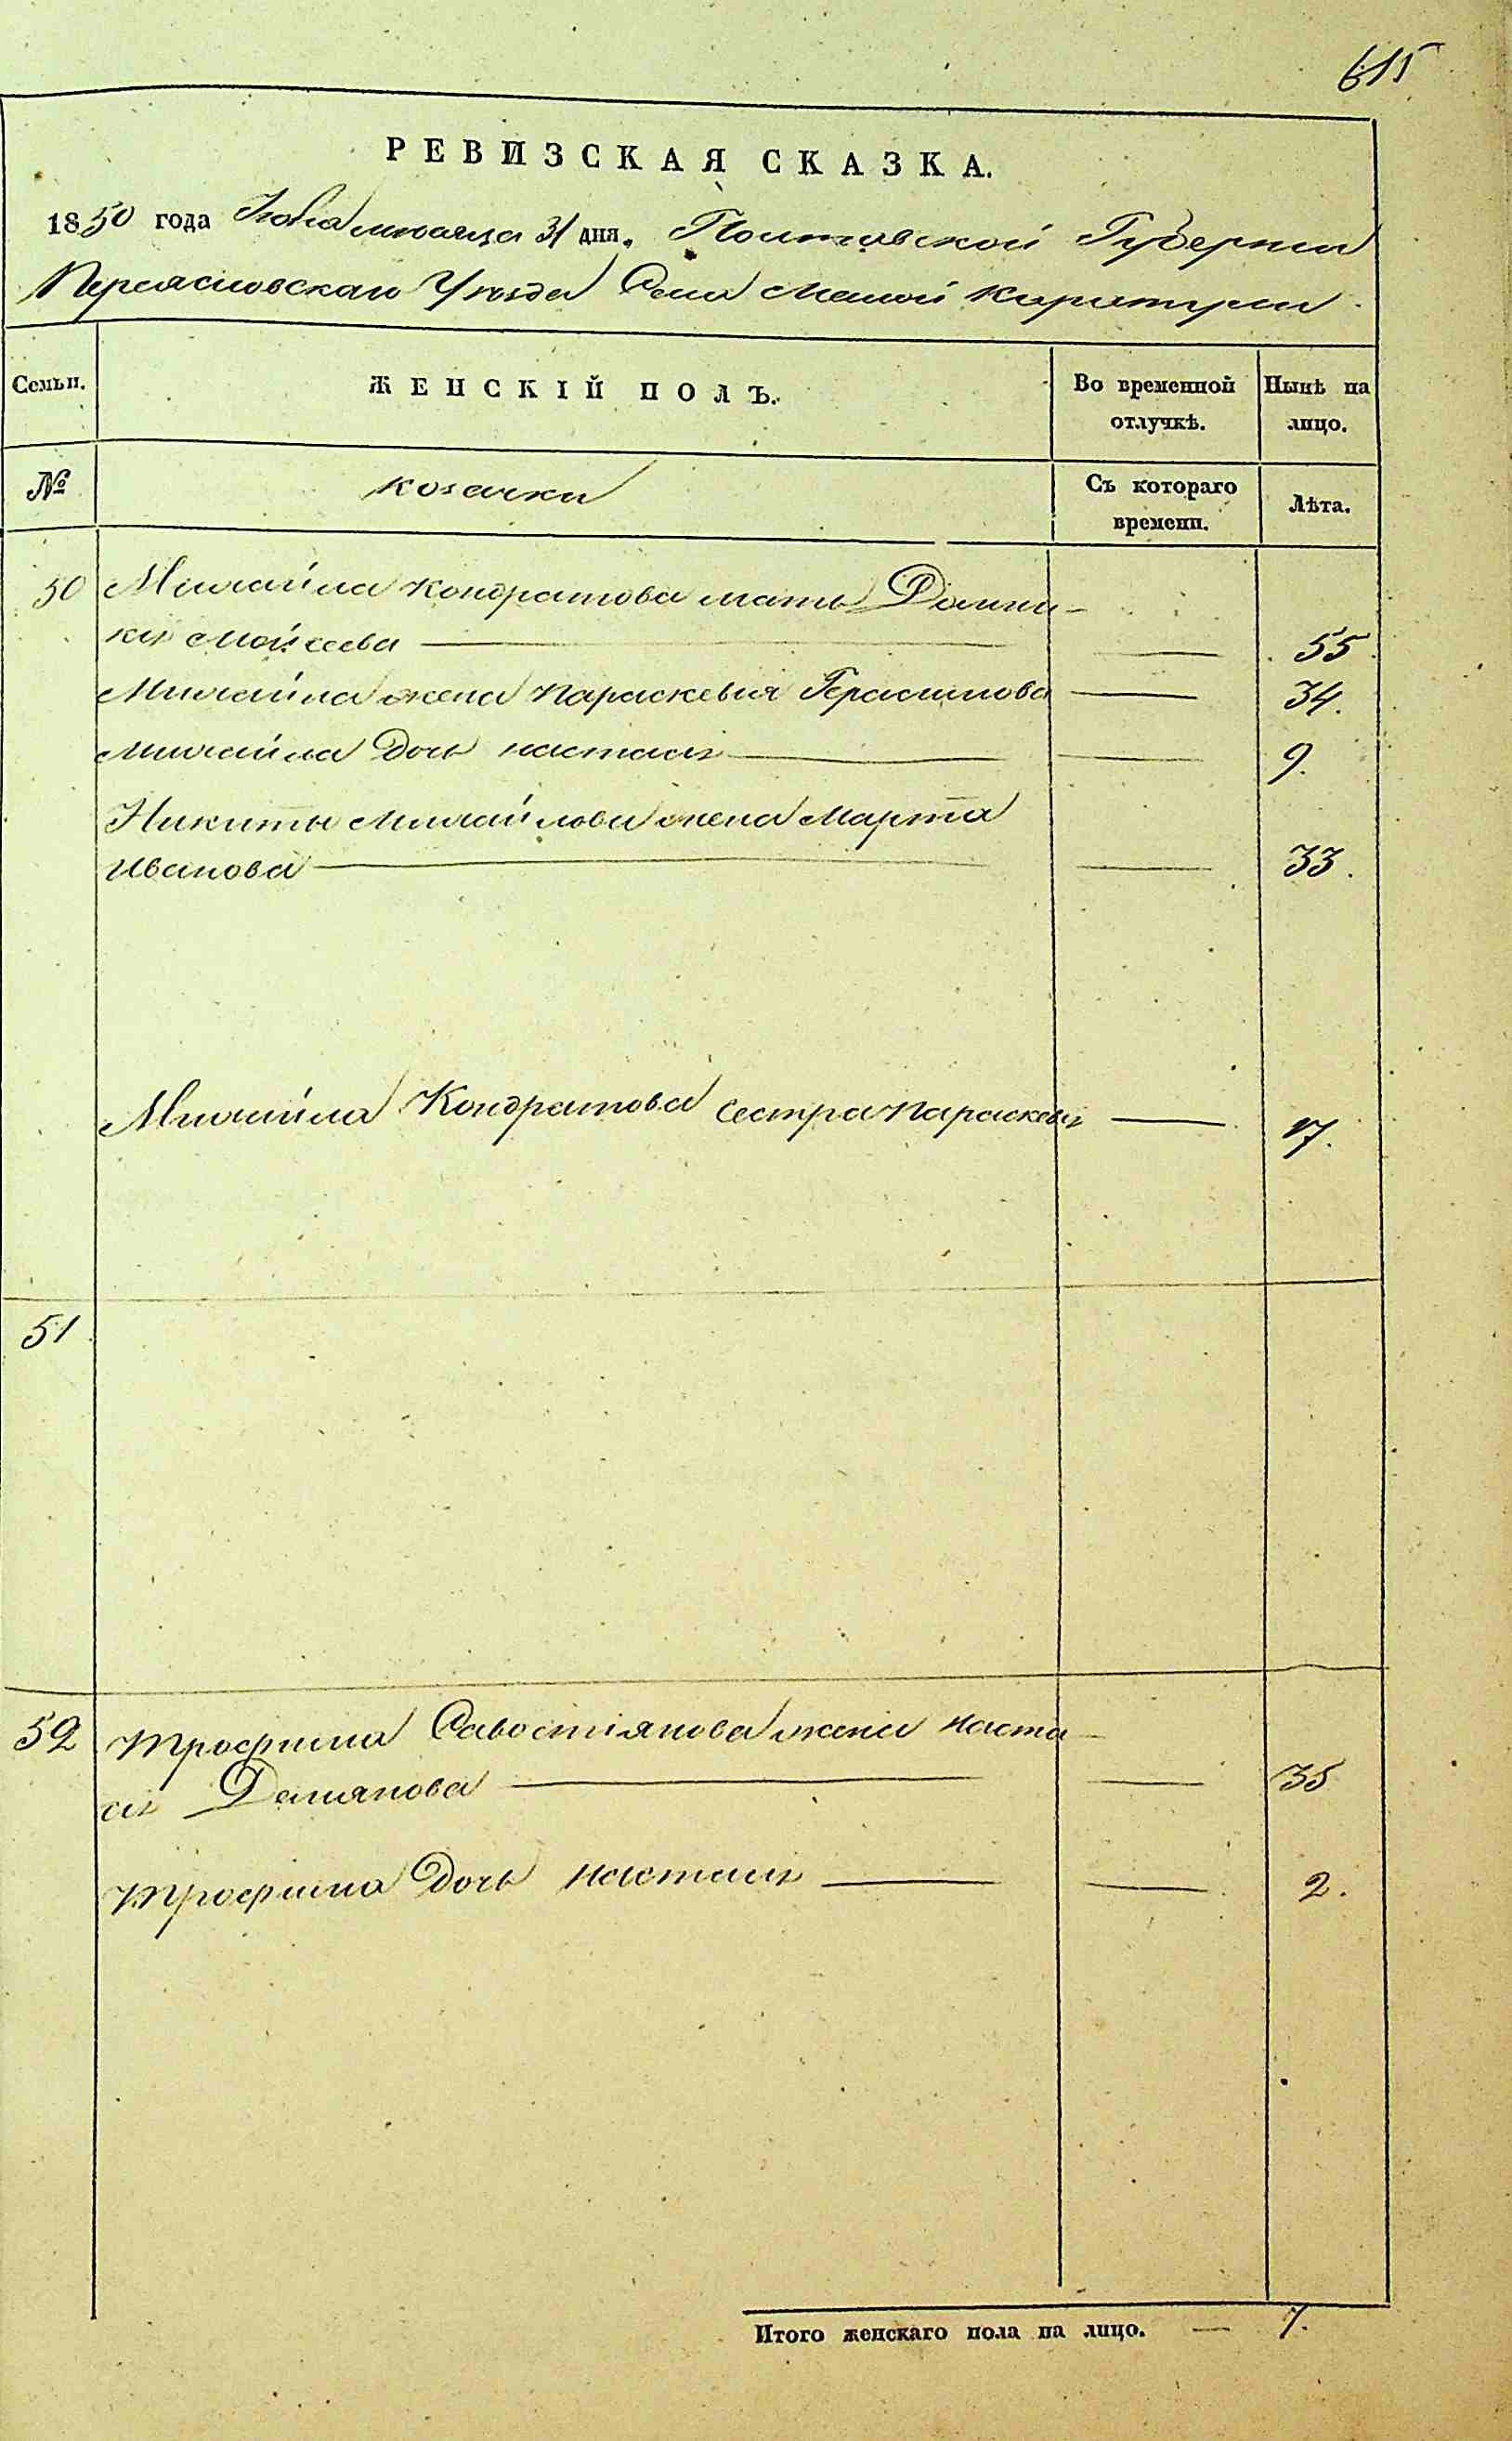 615
РЕВИЗСКАЯ СКАЗКА.
1850 года месяца 31 дня. Полтавской Губернии
Переяславскаго Уезда Села Малой Каратули
Семьи. ЖЕНСКІЙ ПОЛЪ. Во временной отлучкѣ. Нынѣ на лицо.
№ козачки Съ котораго времени. Лѣта.
50 Михайла Кондратова мать Домни-
кія Мойсеева — — 55.
Михайла жена Параскевія Герасимова — 34.
Михайла дочь Настасія — — 9.
Никиты Михайлова жена Марта
Иванова — — 33.
Михайла Кондратова сестра Параскевія — 17.
51
52 Трофима Савостіянова жена Наста-
сія Демянова — — 35
Трофима дочь Настасія — — 2.
Итого женскаго пола на лицо. — 7.